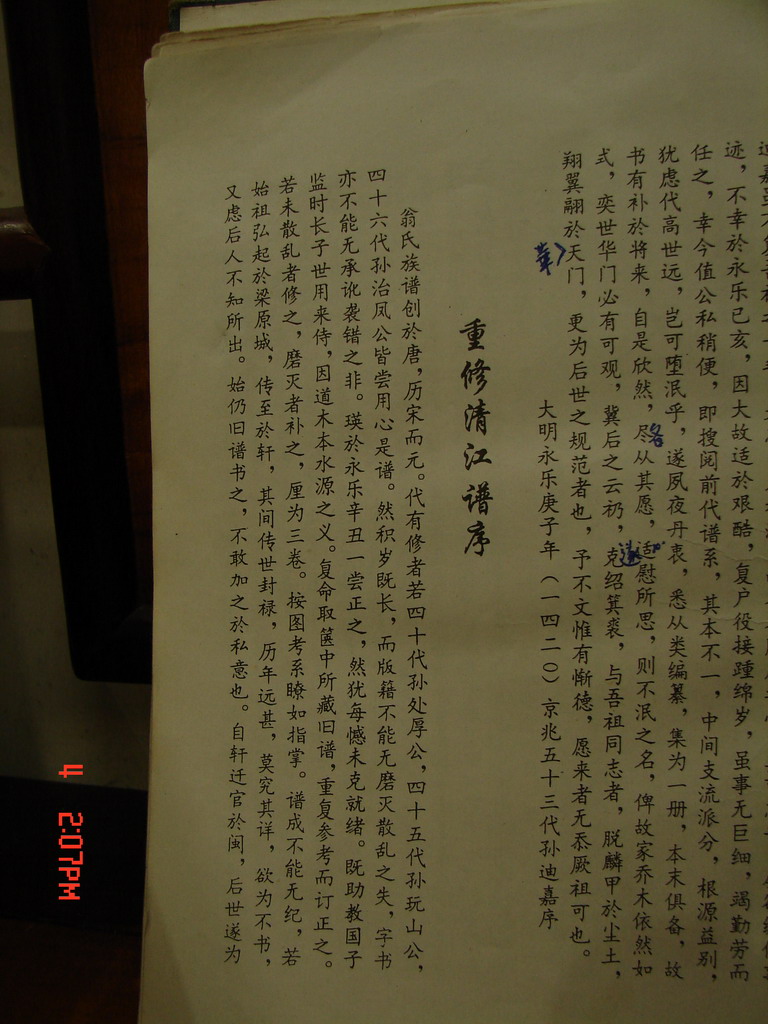 迹，不幸於永乐已亥，因大故适於艰酷，复户役接踵绵岁，虽事无巨细，竭勤劳而
任之，幸今值公私稍便，即搜阅前代谱系，其本不一，中间支流派分，根源益别，
犹虑代高世远，岂可堕泯乎，遂夙夜丹衷，悉从类编纂，集为一册，本末俱备，故
书有补於将来，自是欣然，尽从其愿，适慰所思，则不泯之名，俾故家乔木依然如
名
遂
式，奕世华门必有可观，冀后之云礽，克绍箕裘，与吾祖同志者，脱麟甲於尘土，
翔翼翮於天门，更为后世之规范者也，予不文惟有惭德，愿来者无忝厥祖可也。
大明永乐庚子年（一四二〇）京兆五十三代孙迪嘉序
重修清江谱序
翁氏族谱创於唐，历宋而元。代有修者若四十代孙处厚公，四十五代孙玩山公，
四十六代孙治凤公皆尝用心是谱。然积岁既长，而版籍不能无磨灭散乱之失，字书
亦不能无承讹袭错之非。瑛於永乐辛丑一尝正之，然犹每憾未克就绪。既助教国子
监时长子世用来侍，因道木本水源之义。复命取箧中所藏旧谱，重复参考而订正之。
若未散乱者修之，磨灭者补之，厘为三卷。按图考系瞭如指掌。谱成不能无纪，若
始祖弘起於梁原城，传至於轩，其间传世封禄，历年远甚，莫究其详，欲为不书，
又虑后人不知所出。始仍旧谱书之，不敢加之於私意也。自轩迁官於闽，后世遂为
4 2:07PM